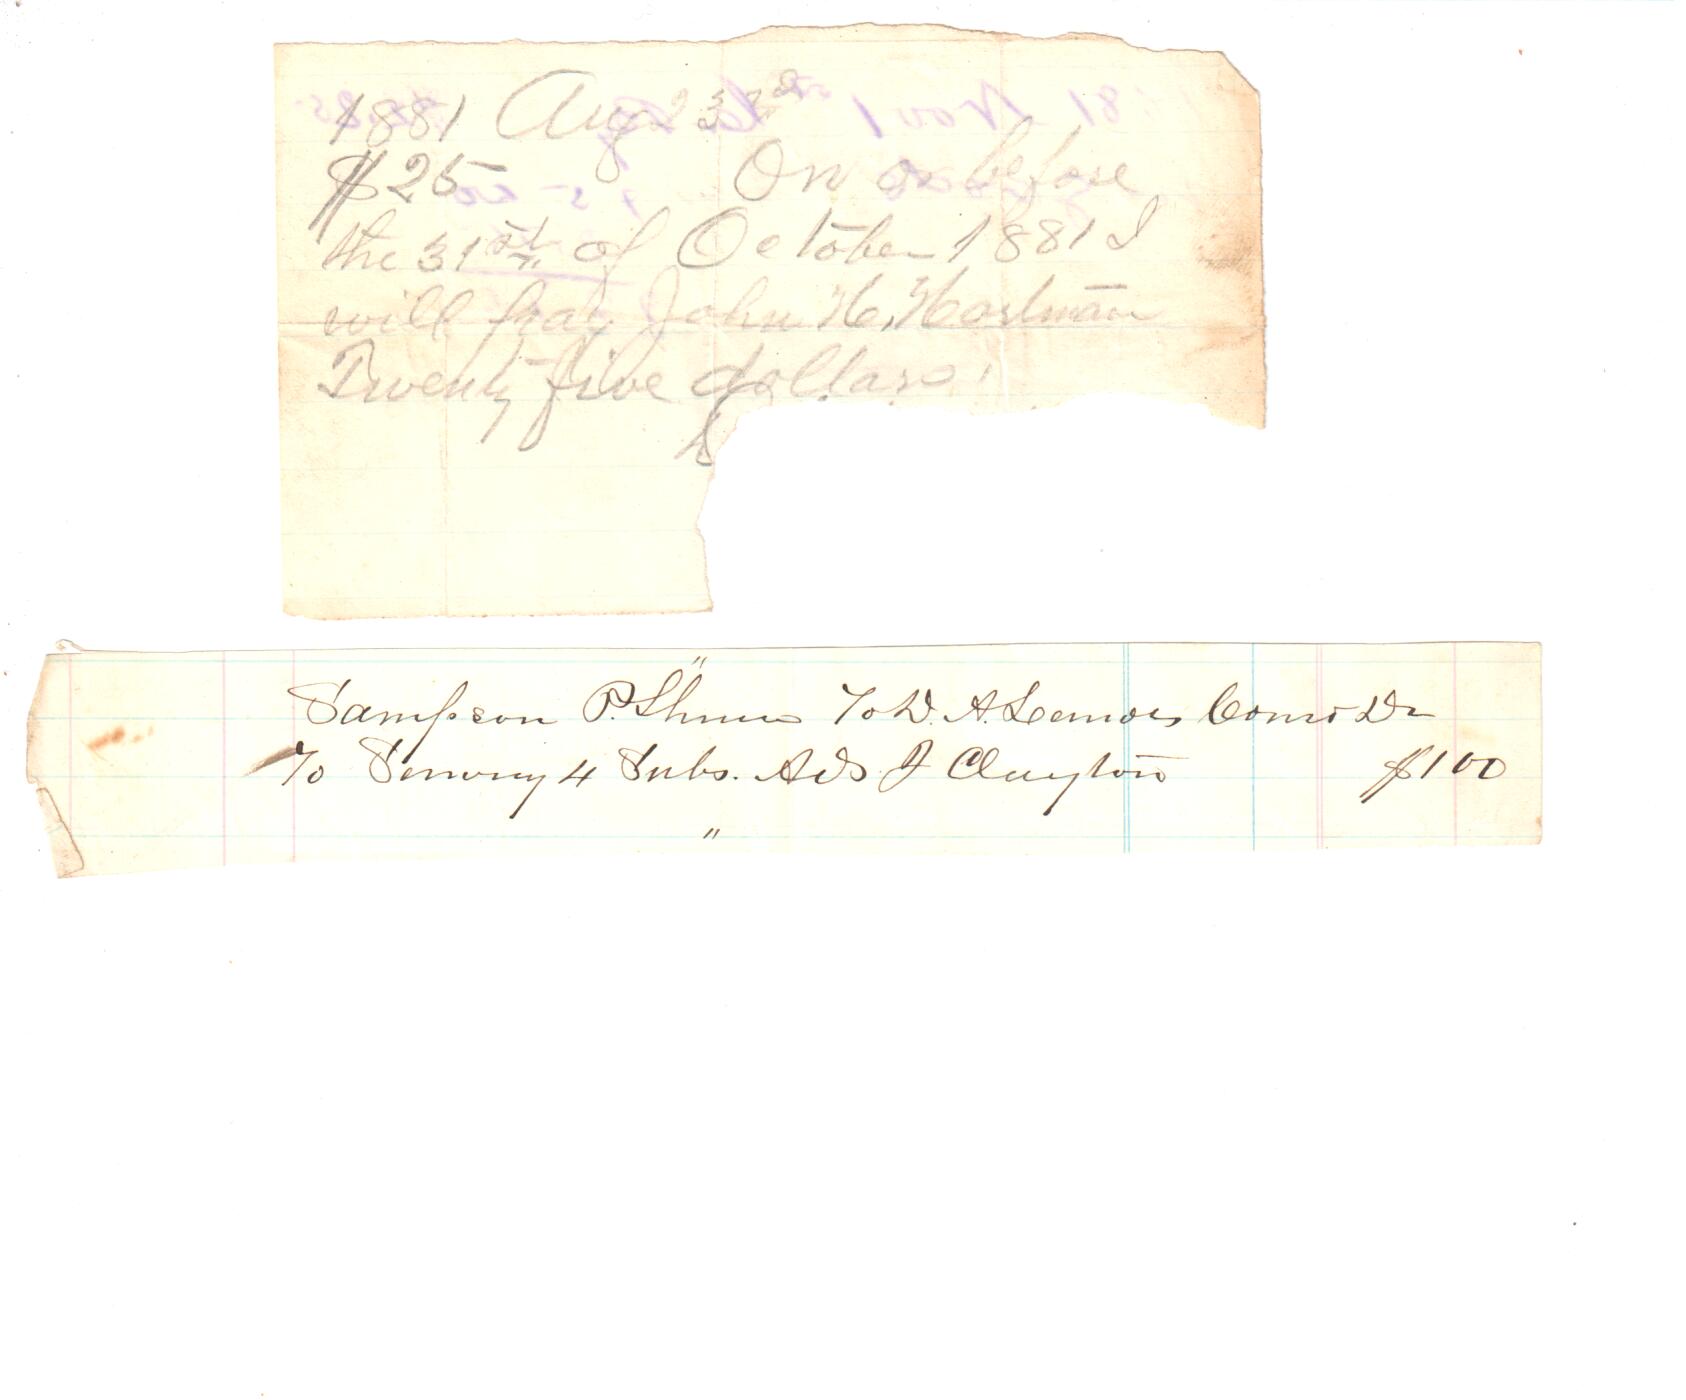 1881 Aug 23rd
$25 On or before
the 31st of October 1881 I
will pay John H. Hartman
Twenty five dollars.
Sampson P. To W. A. Const Dr
To Serving 4 Subs. Ads J Clayton $1 00